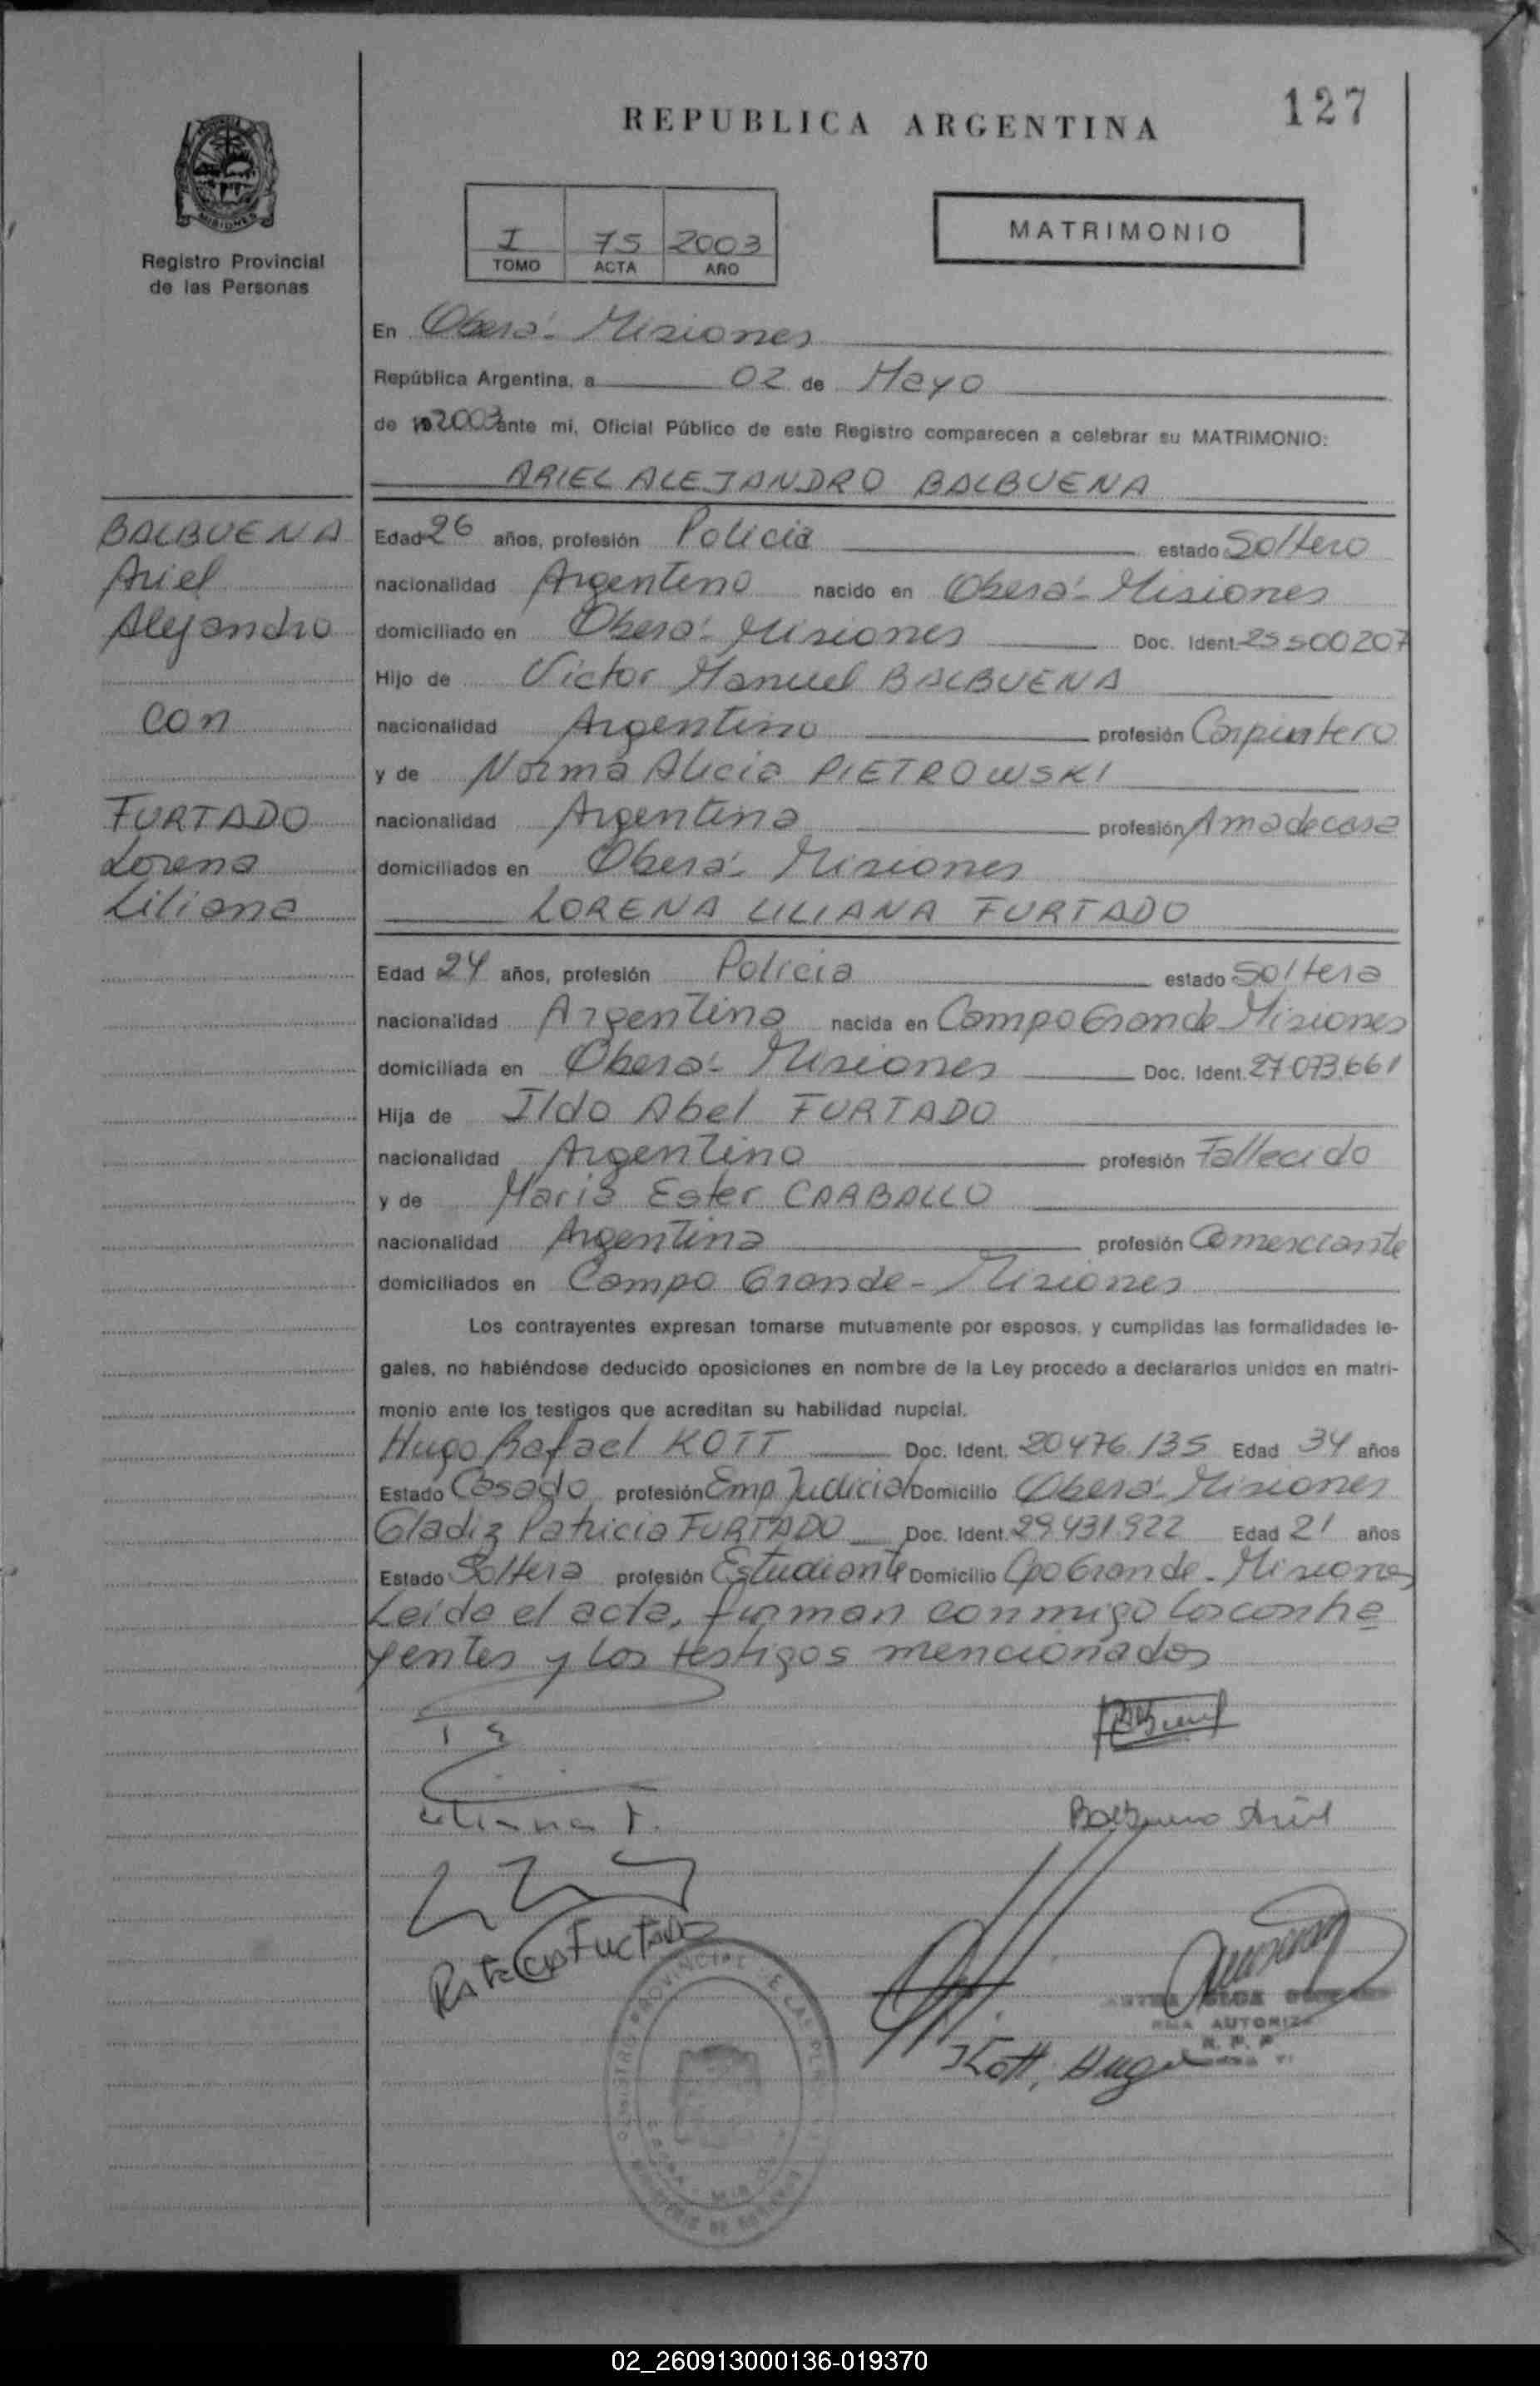 127
REPUBLICA ARGENTINA
MISIONES
Registro Provincial
de las Personas
I 75 2003
TOMO ACTA AÑO
MATRIMONIO
En Oberá - Misiones
República Argentina, a 02 de Mayo
de 2003 ante mi, Oficial Público de este Registro comparecen a celebrar su MATRIMONIO:
ARIEL ALEJANDRO BALBUENA
BALBUENA
Ariel
Alejandro
con
FURTADO
Lorena
Liliana
Edad 26 años, profesión Policia estado Soltero
nacionalidad Argentino nacido en Oberá - Misiones
domiciliado en Oberá - Misiones Doc. Ident. 25500207
Hijo de Victor Manuel BALBUENA
nacionalidad Argentino profesión Carpintero
y de Norma Alicia PIETROWSKI
nacionalidad Argentina profesión Ama de casa
domiciliados en Oberá - Misiones
LORENA LILIANA FURTADO
Edad 24 años, profesión Policia estado Soltera
nacionalidad Argentina nacida en Campo Grande - Misiones
domiciliada en Oberá - Misiones Doc. Ident. 27.073.661
Hija de Ildo Abel FURTADO
nacionalidad Argentino profesión Fallecido
y de Maria Ester CARBALLO
nacionalidad Argentina profesión Comerciante
domiciliados en Campo Grande - Misiones
Los contrayentes expresan tomarse mutuamente por esposos, y cumplidas las formalidades le-
gales, no habiéndose deducido oposiciones en nombre de la Ley procedo a declararlos unidos en matri-
monio ante los testigos que acreditan su habilidad nupcial.
Hugo Rafael KOTT Doc. Ident. 20476.135 Edad 34 años
Estado Casado profesión Emp. Judicial Domicilio Oberá - Misiones
Gladiz Patricia FURTADO Doc. Ident. 29.431.922 Edad 21 años
Estado Soltera profesión Estudiante Domicilio Cpo Grande - Misiones
Leida el acta, firman conmigo los contra
yentes y los testigos mencionados
Liliana F.
Balbuena Ariel
Furtado
Kott, Hugo
AUTORIZ
R. P. P
02_260913000136-019370